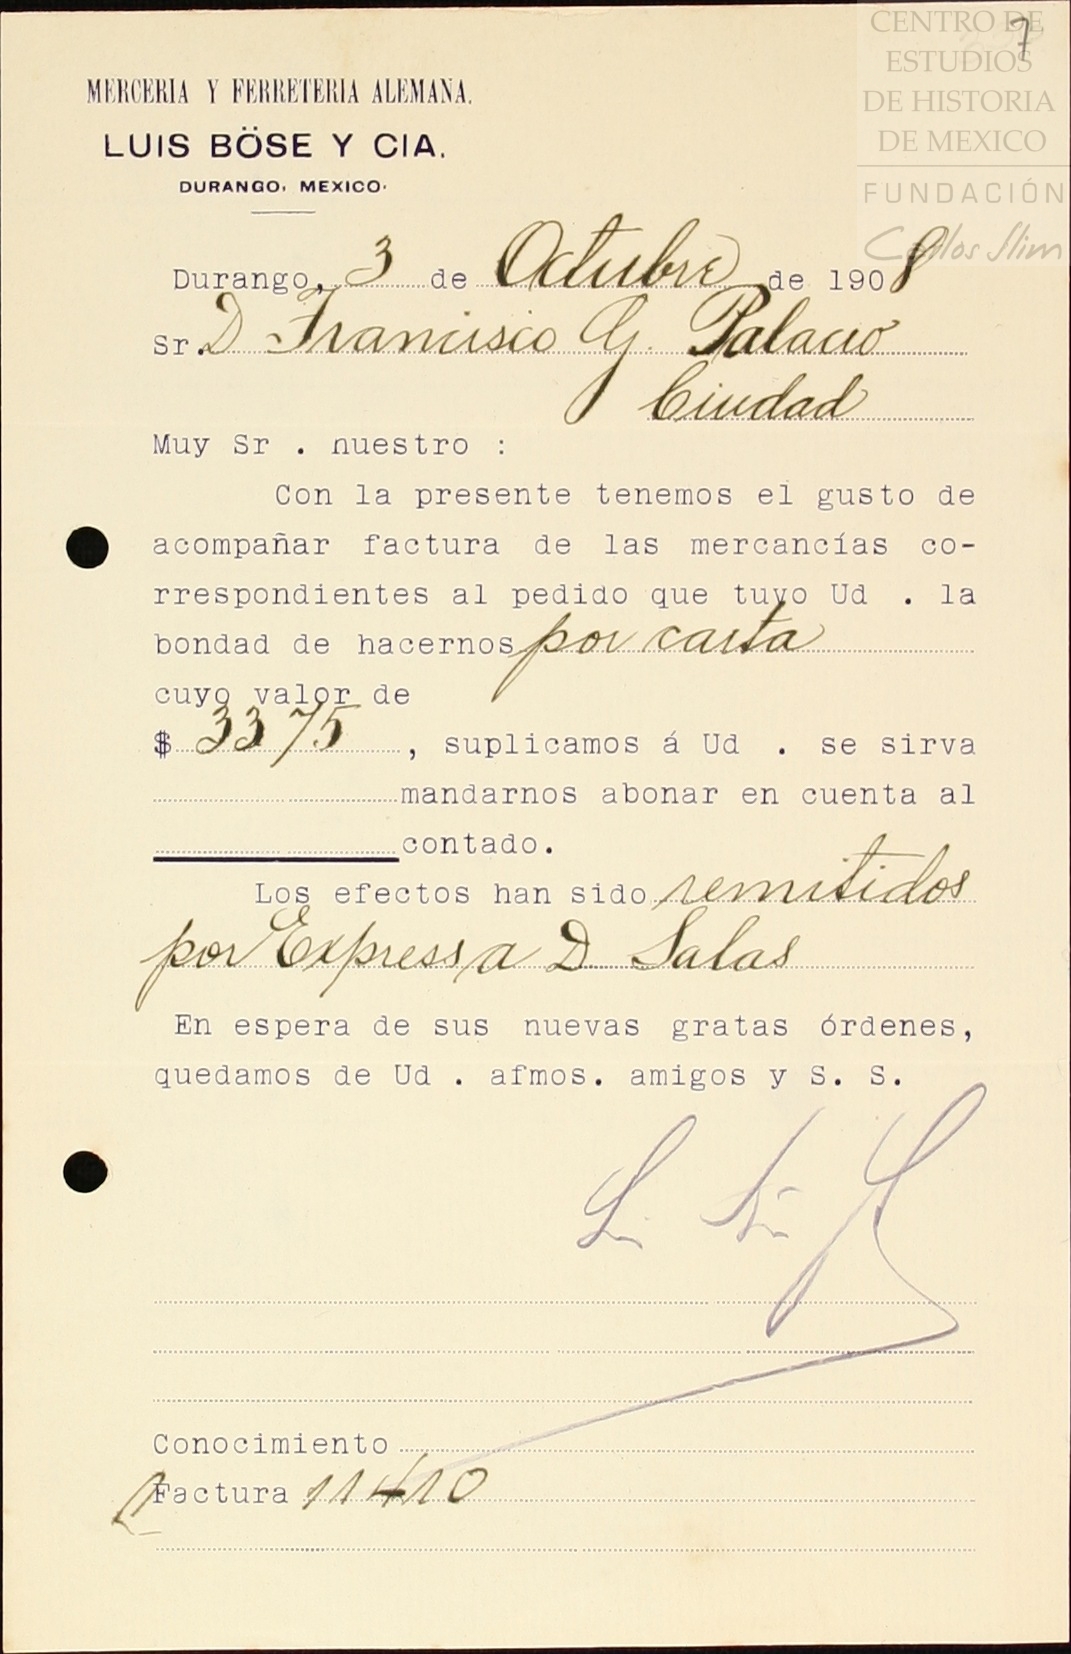 CENTRO DE
ESTUDIOS
DE HISTORIA
DE MEXICO
FUNDACIÓN
Carlos Slim
7
MERCERIA Y FERRETERIA ALEMANA.
LUIS BÖSE Y CIA.
DURANGO, MEXICO.
Durango, 3 de Octubre de 1908
Sr. D Francisco G. Palacio
Ciudad
Muy Sr. nuestro :
Con la presente tenemos el gusto de
acompañar factura de las mercancías co-
rrespondientes al pedido que tuvo Ud. la
bondad de hacernos por carta
cuyo valor de
$ 33 75, suplicamos á Ud. se sirva
mandarnos abonar en cuenta al
contado.
Los efectos han sido remitidos
por Express a D Salas
En espera de sus nuevas gratas órdenes,
quedamos de Ud. afmos. amigos y S. S.
Conocimiento
Factura 11410